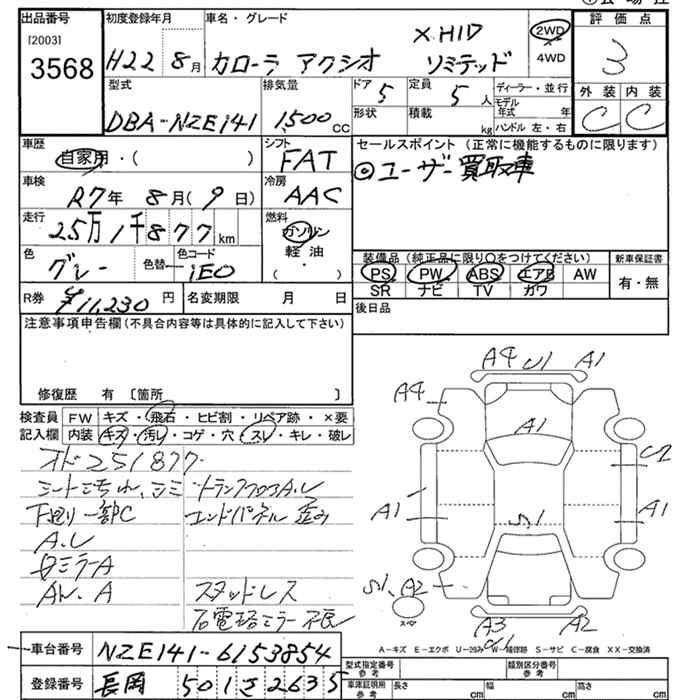 出品番号
[2003]
3568
初度登録年月
H22年8月
車名・グレード
カローラ アクシオ
X HID
リミテッド
2WD
4WD
評価点
3
外装 内装
C C
型式
DBA-NZE141
排気量
1,500cc
ドア 5
形状
定員 5人
積載 kg
ディーラー・並行
モデル年式 年
ハンドル 左・右
車歴
自家用・( )
シフト
FAT
セールスポイント (正常に機能するものに限ります)
◎ユーザー買取車
車検
R7年 8月(9日)
冷房
AAC
走行
25万1千877km
燃料
ガソリン
軽油
( )
色
グレー
色替
色コード
1E0
装備品(純正品に限り○をつけてください)
PS PW ABS エアB AW
SR ナビ TV カワ
新車保証書
有・無
R券 ¥11,230円
名変期限 月 日
後日品
注意事項申告欄(不具合内容等は具体的に記入して下さい)
修復歴 有 〔箇所 〕
検査員 FW キズ・飛石・ヒビ割・リペア跡・×要
記入欄 内装 キズ・汚レ・コゲ・穴・スレ・キレ・破レ
オド251877
シートこちれ、シミ
トランクフロアA.U
下廻り一部C
エンドパネル 歪み
A.U
Bミラー A
AW.A
スタッドレス
右電格ミラー不良
A4 U1 A1
A4
A1
U2
A1
A1
S1
S1、A2
スペア
A3
U1
A2
A-キズ E-エクボ U-凹み W-補修跡 S-サビ C-腐食 XX-交換済
車台番号 NZE141-6153854
登録番号 長岡 501さ2635
型式指定番号
参考
類別区分番号
参考
車庫証明用
参考
長さ cm
幅 cm
高さ cm